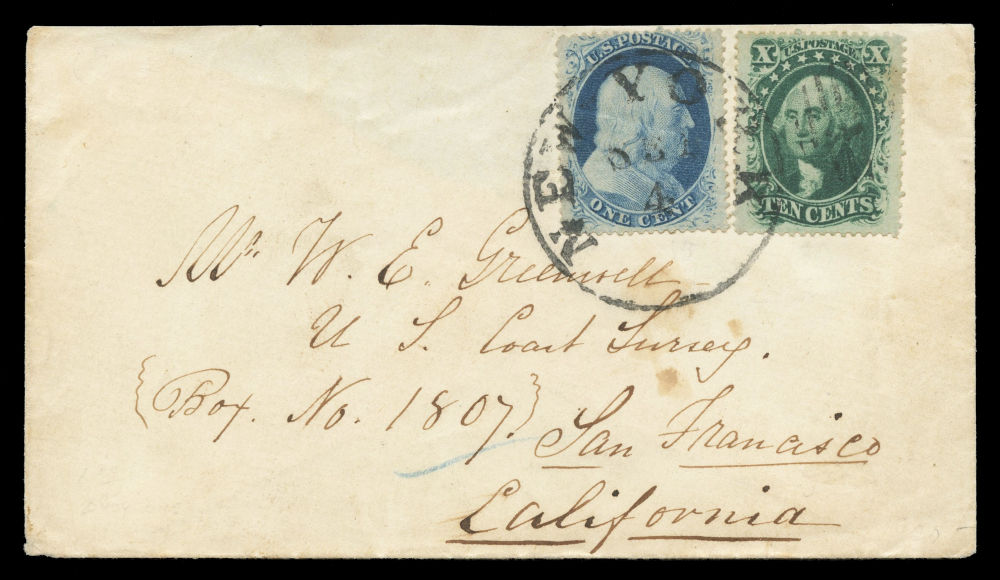 U.S. POSTAGE
ONE CENT
X U.S. POSTAGE X
TEN CENTS
NEW YORK
DEC
4
Mr. W. E. Greenwell
U S. Coast Survey.
{Box. No. 1807.}
San Francisco
California